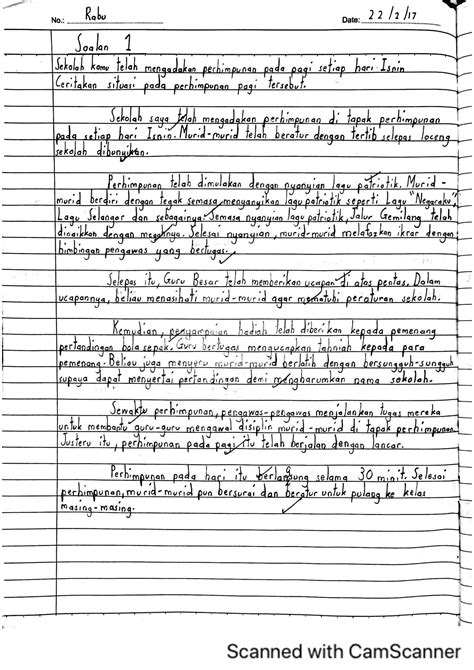 No.: Rabu Date: 22/2/17
Soalan 1
Sekolah kamu telah mengadakan perhimpunan pada pagi setiap hari Isnin
Ceritakan situasi pada perhimpunan pagi tersebut.
Sekolah saya telah mengadakan perhimpunan di tapak perhimpunan
pada setiap hari Isnin. Murid-murid telah beratur dengan tertib selepas loceng
sekolah dibunyikan.
Perhimpunan telah dimulakan dengan nyanyian lagu patriotik. Murid-
murid berdiri dengan tegak semasa menyanyikan lagu patriotik seperti Lagu "Negaraku",
Lagu Selangor dan sebagainya. Semasa nyanyian lagu patriotik, Jalur Gemilang telah
dinaikkan dengan megahnya. Selesai nyanyian, murid-murid melafazkan ikrar dengan
bimbingan pengawas yang bertugas.
Selepas itu, Guru Besar telah memberikan ucapan di atas pentas. Dalam
ucapannya, beliau menasihati murid-murid agar mematuhi peraturan sekolah.
Kemudian, penyampaian hadiah telah diberikan kepada pemenang
pertandingan bola sepak. Guru bertugas mengucapkan tahniah kepada para
pemenang. Beliau juga menyeru murid-murid berlatih dengan bersungguh-sungguh
supaya dapat menyertai pertandingan demi mengharumkan nama sekolah.
Sewaktu perhimpunan, pengawas-pengawas menjalankan tugas mereka
untuk membantu guru-guru mengawal disiplin murid-murid di tapak perhimpunan
Justeru itu, perhimpunan pada pagi itu telah berjalan dengan lancar.
Perhimpunan pada hari itu berlangsung selama 30 minit. Selesai
perhimpunan, murid-murid pun bersurai dan beratur untuk pulang ke kelas
masing-masing.
Scanned with CamScanner